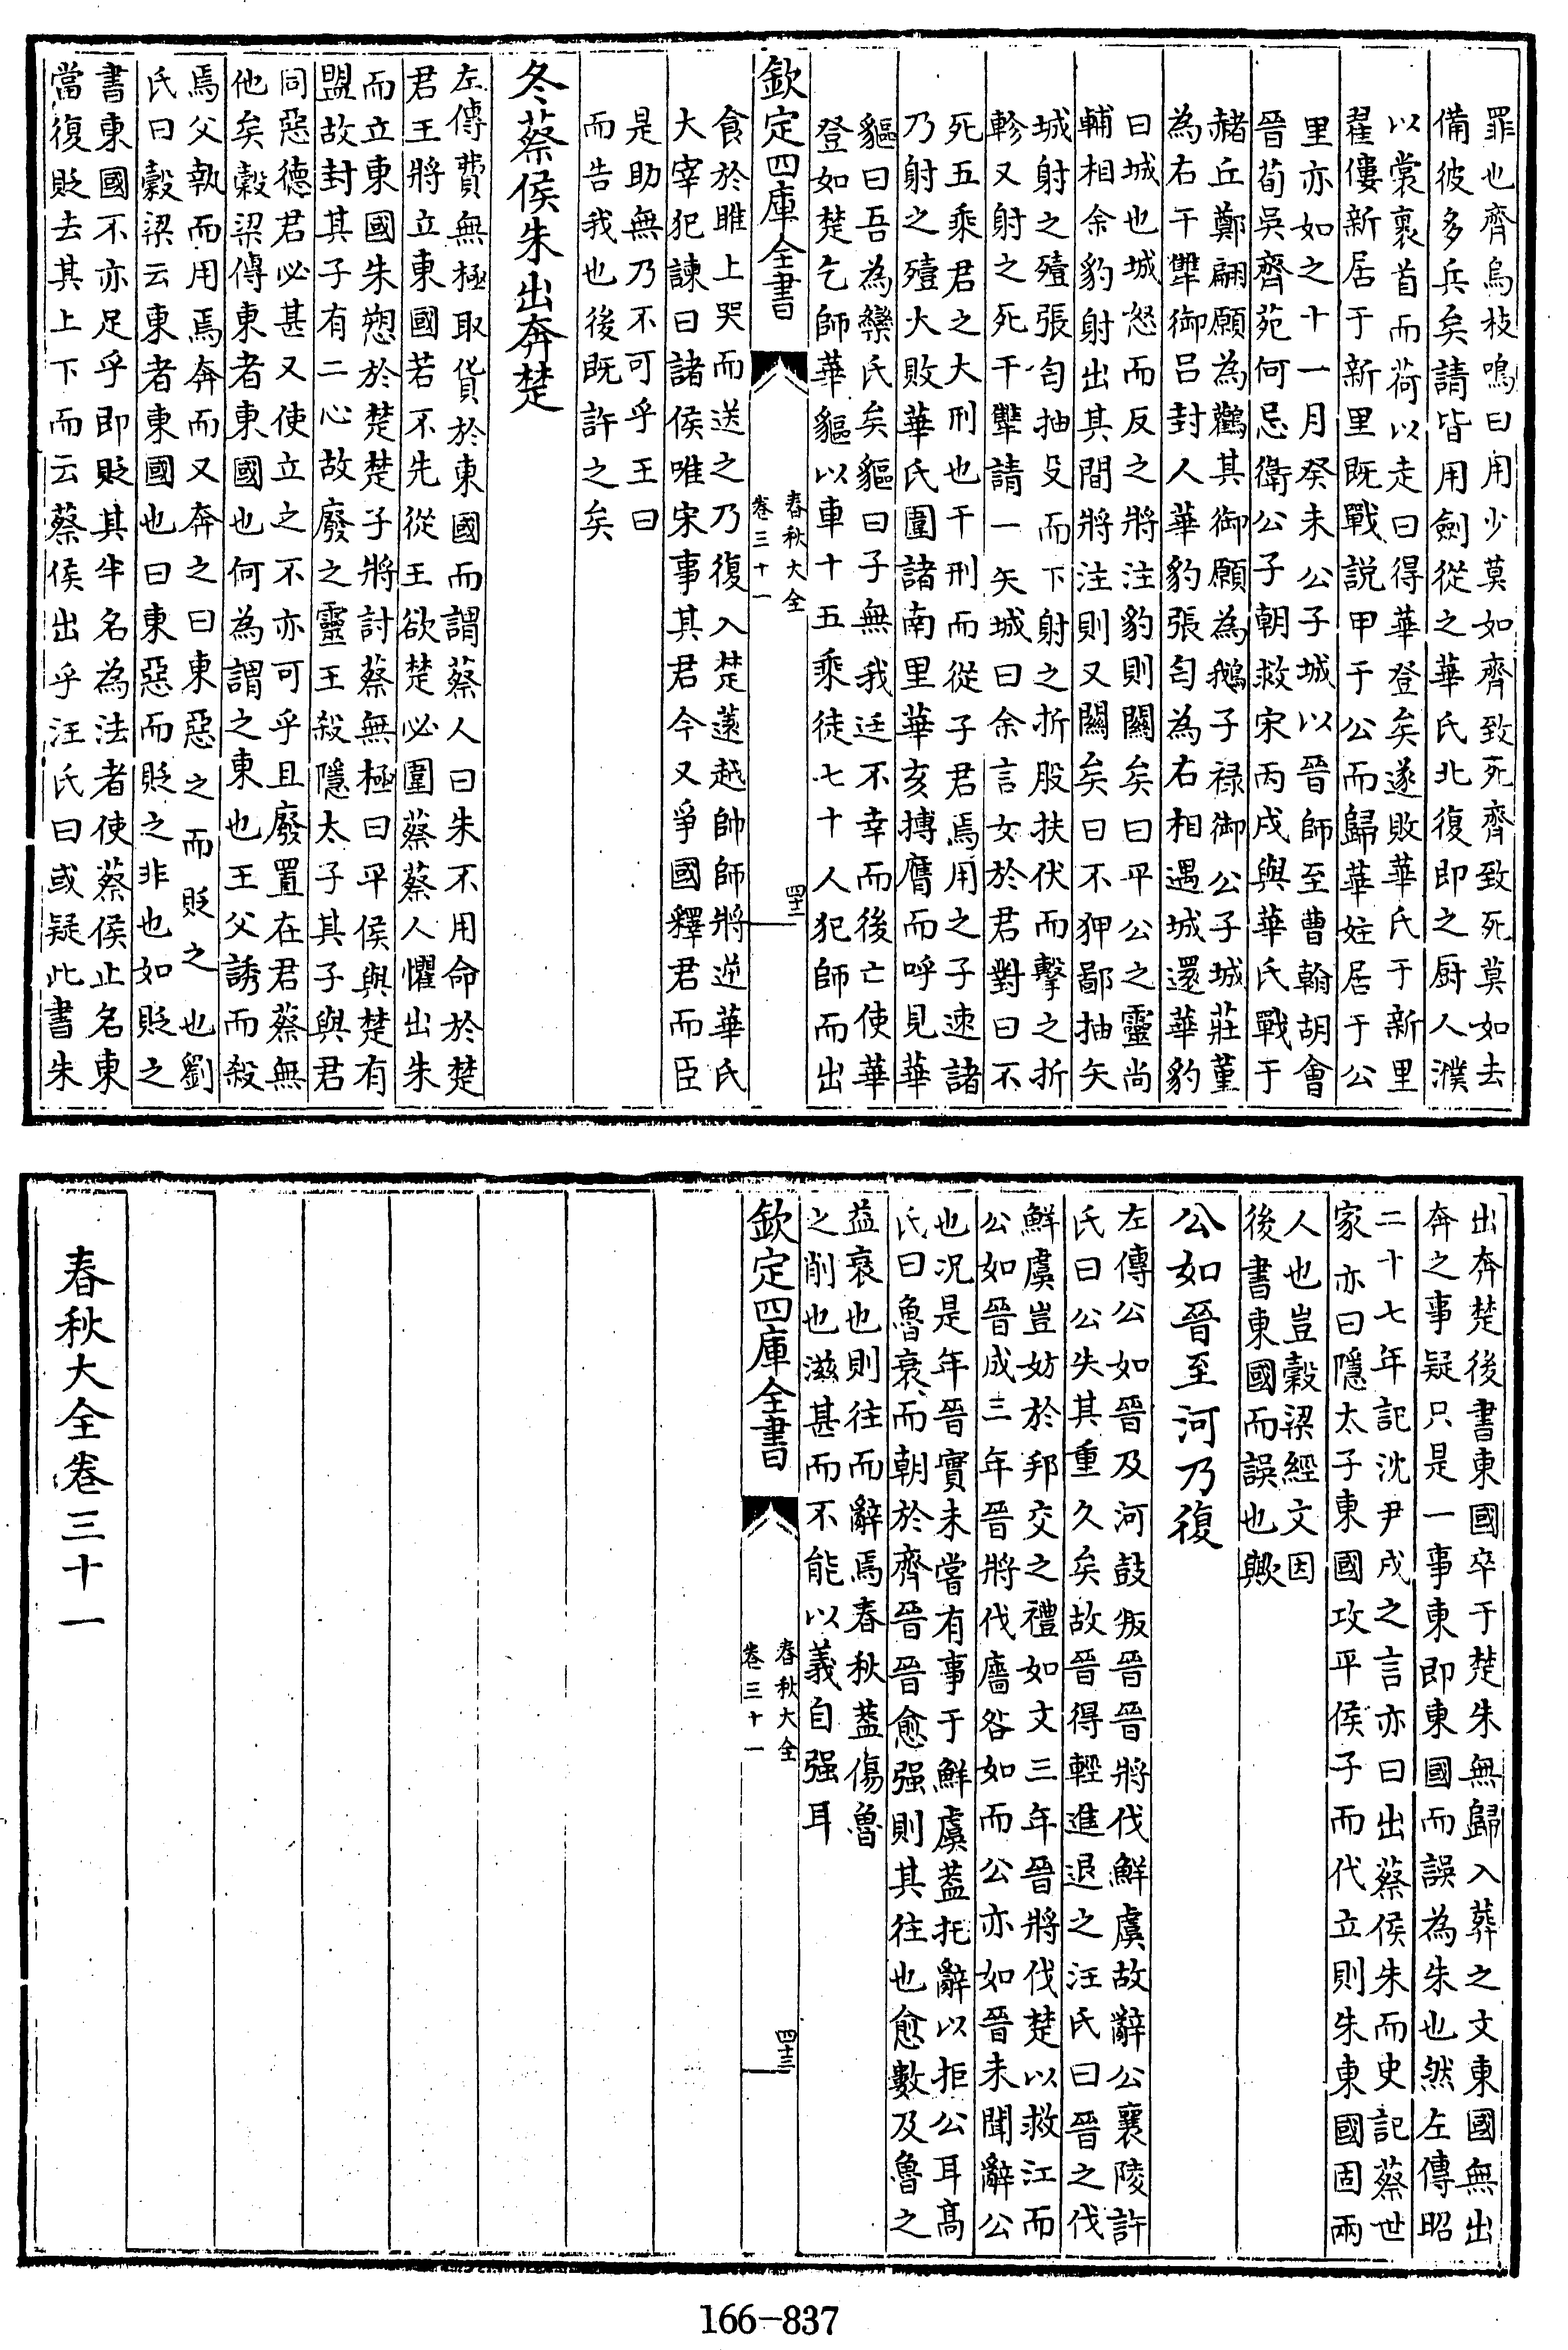 罪也齊烏枝鳴曰用少莫如齊致死齊致死莫如去
備彼多兵矣請皆用劍從之華氏北復即之厨人濮
以裳裹首而荷以走曰得華登矣遂敗華氏于新里
翟僂新居于新里既戰説甲于公而歸華妵居于公
里亦如之十一月癸未公子城以晉師至曹翰胡會
晉荀吳齊苑何忌衛公子朝救宋丙戌與華氏戰于
赭丘鄭翩願為鸛其御願為鵝子禄御公子城莊堇
為右干犨御吕封人華豹張匄為右相遇城還華豹
曰城也城怒而反之將注豹則關矣曰平公之靈尚
輔相余豹射出其間將注則又關矣曰不狎鄙抽矢
城射之殪張匄抽殳而下射之折股扶伏而擊之折
軫又射之死干犨請一矢城曰余言女於君對曰不
死五乘君之大刑也干刑而從子君焉用之子速諸
乃射之殪大敗華氏圍諸南里華亥搏膺而呼見華
貙曰吾為欒氏矣貙曰子無我迋不幸而後亡使華
登如楚乞師華貙以車十五乘徒七十人犯師而出
欽定四庫全書
春秋大全
卷三十一
四十二
食於睢上哭而送之乃復入楚薳越帥師將逆華氏
大宰犯諫曰諸侯唯宋事其君今又爭國釋君而臣
是助無乃不可乎王曰
而告我也後既許之矣
冬蔡侯朱出奔楚
左傳費無極取貨於東國而謂蔡人曰朱不用命於楚
君王將立東國若不先從王欲楚必圍蔡蔡人懼出朱
而立東國朱愬於楚楚子將討蔡無極曰平侯與楚有
盟故封其子有二心故廢之靈王殺隱太子其子與君
同惡德君必甚又使立之不亦可乎且廢置在君蔡無
他矣穀梁傳東者東國也何為謂之東也王父誘而殺
焉父執而用焉奔而又奔之曰東惡之而貶之也劉
氏曰穀梁云東者東國也曰東惡而貶之非也如貶之
書東國不亦足乎即貶其半名為法者使蔡侯止名東
當復貶去其上下而云蔡侯出乎汪氏曰或疑此書朱
出奔楚後書東國卒于楚朱無歸入葬之文東國無出
奔之事疑只是一事東即東國而誤為朱也然左傳昭
二十七年記沈尹戌之言亦曰出蔡侯朱而史記蔡世
家亦曰隱太子東國攻平侯子而代立則朱東國固兩
人也豈穀梁經文因
後書東國而誤也歟
公如晉至河乃復
左傳公如晉及河鼓叛晉晉將伐鮮虞故辭公襄陵許
氏曰公失其重久矣故晉得輕進退之汪氏曰晉之伐
鮮虞豈妨於邦交之禮如文三年晉將伐楚以救江而
公如晉成三年晉將伐廧咎如而公亦如晉未聞辭公
也况是年晉實未嘗有事于鮮虞葢托辭以拒公耳髙
氏曰魯衰而朝於齊晉晉愈强則其往也愈數及魯之
益衰也則往而辭焉春秋葢傷魯
之削也滋甚而不能以義自强耳
欽定四庫全書
春秋大全
卷三十一
四十三
春秋大全卷三十一
166-837